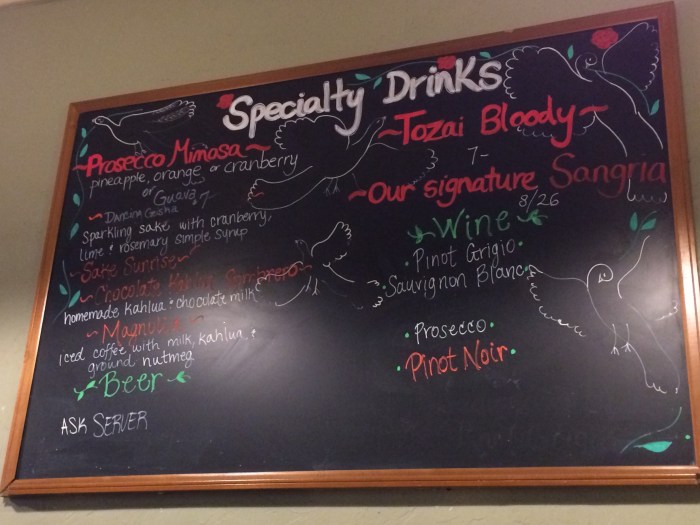 Specialty Drinks
~Prosecco Mimosa~
pineapple, orange or cranberry
or Guava 7
~Dancing Geisha
sparkling sake with cranberry,
lime & rosemary simple syrup
~Sake Sunrise~
~Chocolate Kahlua Sombrero~
homemade Kahlua & chocolate milk
~Magnolia~
iced coffee with milk, kahlua &
ground nutmeg
Beer
ASK SERVER
~Tozai Bloody~
7-
~Our signature Sangria
8/26
Wine
•Pinot Grigio•
•Sauvignon Blanc•
•Prosecco•
•Pinot Noir•